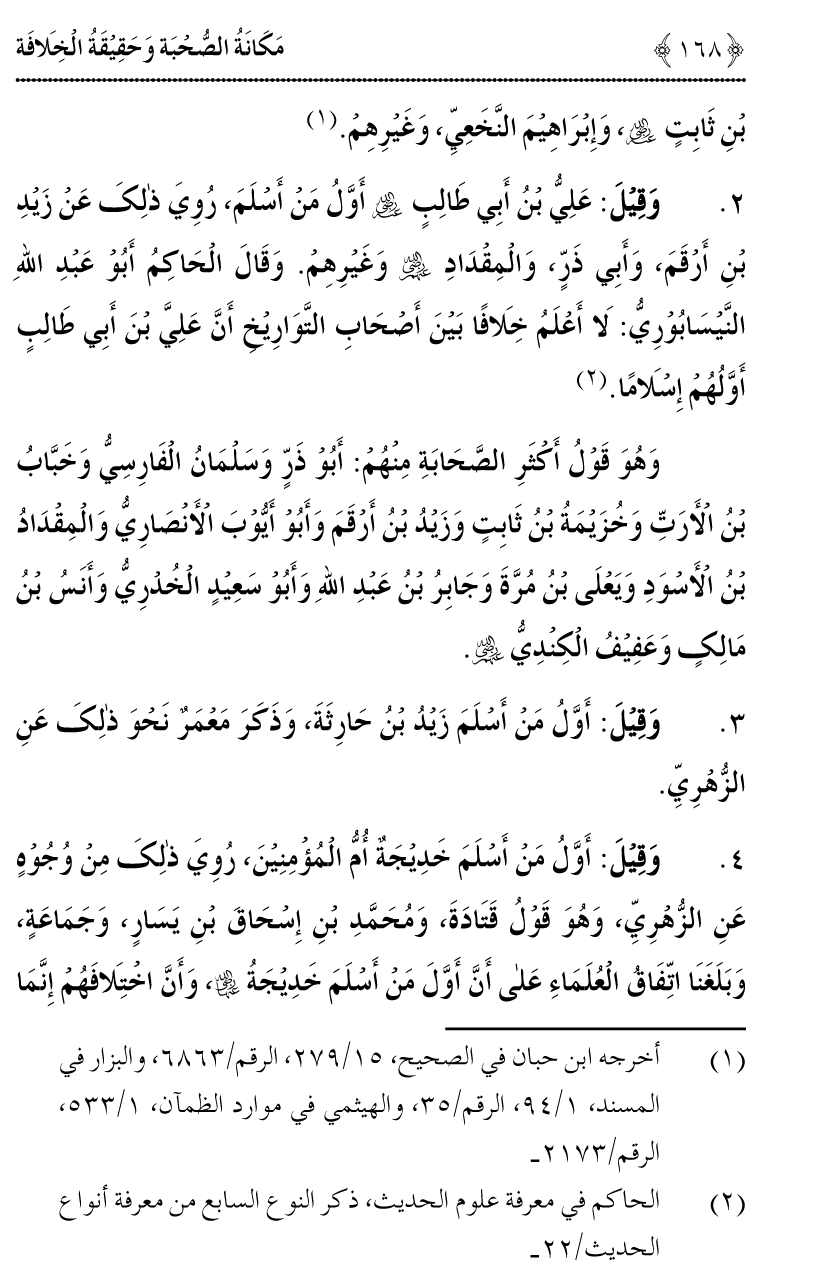 ﴿١٦٨﴾ مَكَانَةُ الصُّحْبَة وَحَقِيْقَةُ الْخِلَافَة
بْنِ ثَابِتٍ ، وَإِبْرَاهِيْمَ النَّخَعِيِّ، وَغَيْرِهِمْ.(١)
٢. وَقِيْلَ: عَلِيُّ بْنُ أَبِي طَالِبٍ أَوَّلُ مَنْ أَسْلَمَ، رُوِيَ ذٰلِکَ عَنْ زَيْدِ
بْنِ أَرْقَمَ، وَأَبِي ذَرٍّ، وَالْمِقْدَادِ وَغَيْرِهِمْ. وَقَالَ الْحَاكِمُ أَبُوْ عَبْدِ اللهِ
النَّيْسَابُوْرِيُّ: لَا أَعْلَمُ خِلَافًا بَيْنَ أَصْحَابِ التَّوَارِيْخِ أَنَّ عَلِيَّ بْنَ أَبِي طَالِبٍ
أَوَّلُهُمْ إِسْلَامًا.(٢)
وَهُوَ قَوْلُ أَكْثَرِ الصَّحَابَةِ مِنْهُمْ: أَبُوْ ذَرٍّ وَسَلْمَانُ الْفَارِسِيُّ وَخَبَّابُ
بْنُ الْأَرَتِّ وَخُزَيْمَةُ بْنُ ثَابِتٍ وَزَيْدُ بْنُ أَرْقَمَ وَأَبُوْ أَيُّوْبَ الْأَنْصَارِيُّ وَالْمِقْدَادُ
بْنُ الْأَسْوَدِ وَيَعْلَى بْنُ مُرَّةَ وَجَابِرُ بْنُ عَبْدِ اللهِ وَأَبُوْ سَعِيْدٍ الْخُدْرِيُّ وَأَنَسُ بْنُ
مَالِکٍ وَعَفِيْفُ الْكِنْدِيُّ .
٣. وَقِيْلَ: أَوَّلُ مَنْ أَسْلَمَ زَيْدُ بْنُ حَارِثَةَ، وَذَكَرَ مَعْمَرٌ نَحْوَ ذٰلِکَ عَنِ
الزُّهْرِيِّ.
٤. وَقِيْلَ: أَوَّلُ مَنْ أَسْلَمَ خَدِيْجَةُ أُمُّ الْمُؤْمِنِيْنَ، رُوِيَ ذٰلِکَ مِنْ وُجُوْهٍ
عَنِ الزُّهْرِيِّ، وَهُوَ قَوْلُ قَتَادَةَ، وَمُحَمَّدِ بْنِ إِسْحَاقَ بْنِ يَسَارٍ، وَجَمَاعَةٍ،
وَبَلَغَنَا اتِّفَاقُ الْعُلَمَاءِ عَلٰى أَنَّ أَوَّلَ مَنْ أَسْلَمَ خَدِيْجَةُ ، وَأَنَّ اخْتِلَافَهُمْ إِنَّمَا
(١) أخرجه ابن حبان في الصحيح، ١٥/٢٧٩، الرقم/٦٨٦٣، والبزار في
المسند، ١/٩٤، الرقم/٣٥، والهيثمي في موارد الظمآن، ١/٥٣٣،
الرقم/٢١٧٣ـ
(٢) الحاكم في معرفة علوم الحديث، ذكر النوع السابع من معرفة أنواع
الحديث/٢٢ـ